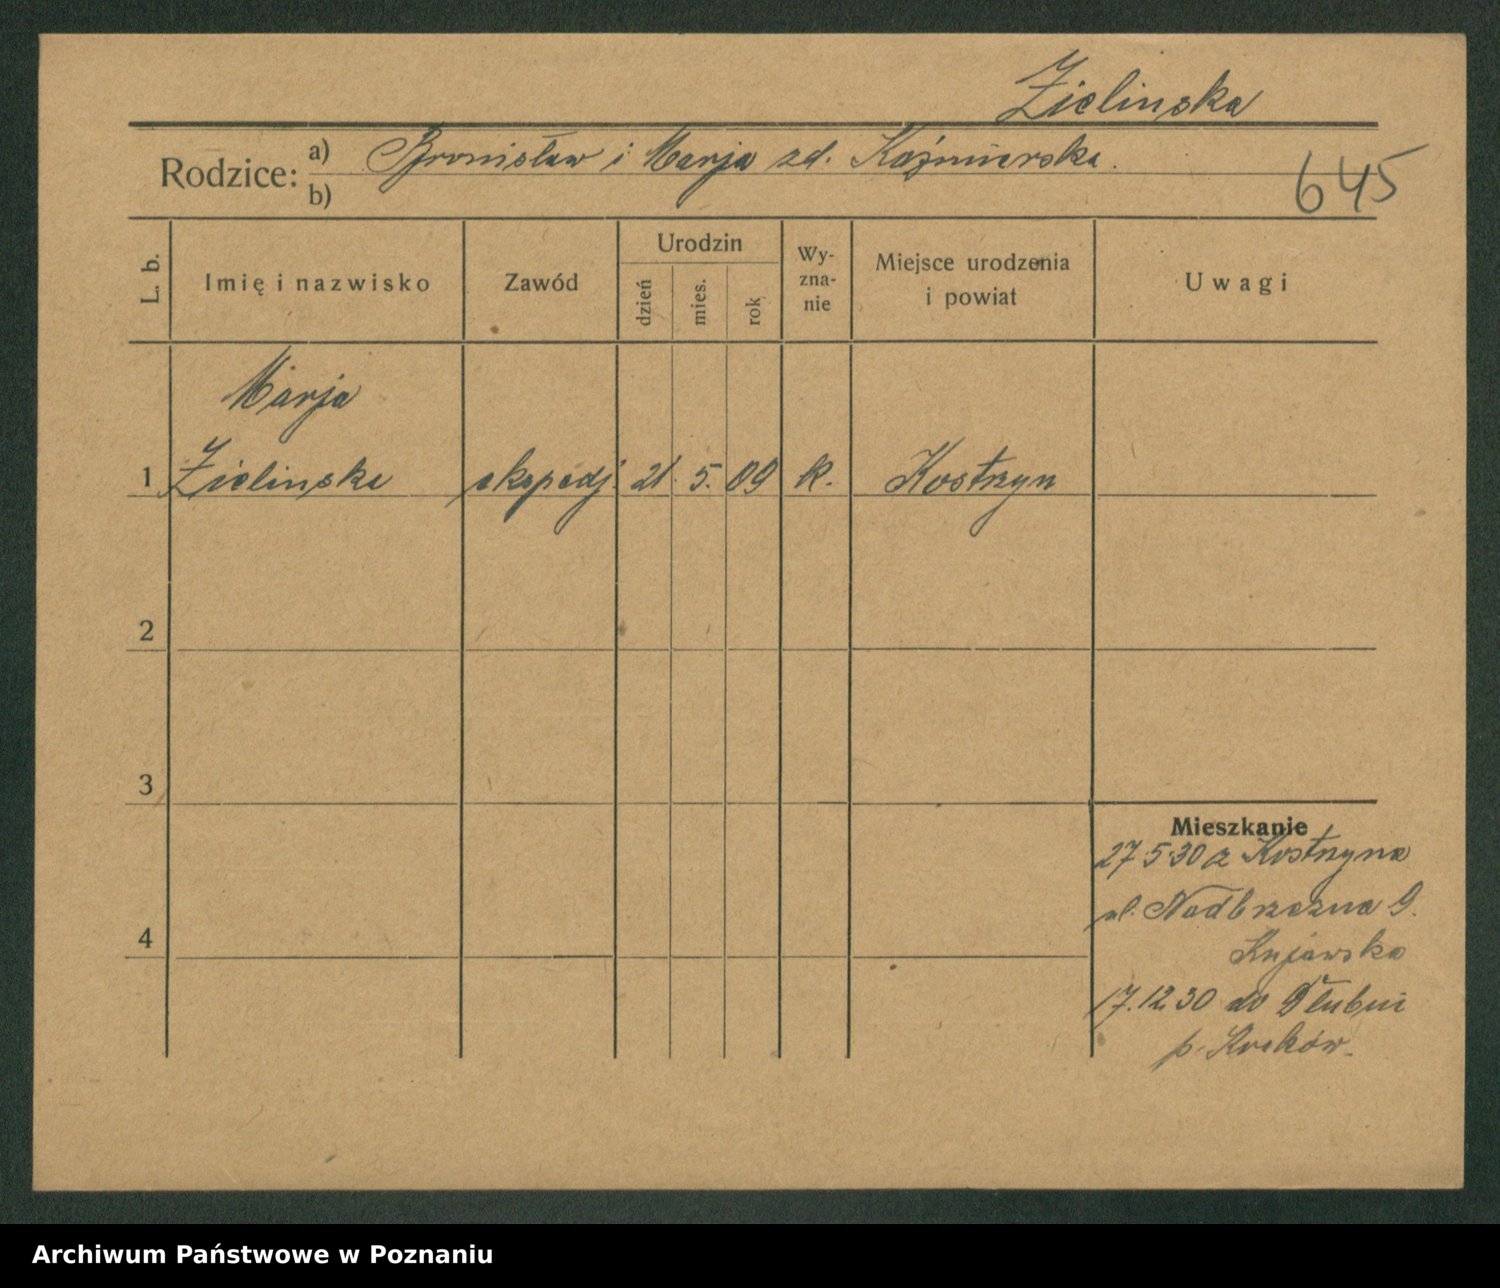 Zielinska
Rodzice: a) Bronisław i Marja zd. Kaźmierska.
b)
645
L. b.
Imię i nazwisko
Zawód
Urodzin
dzień
mies.
rok
Wy-
zna-
nie
Miejsce urodzenia
i powiat
Uwagi
Marja
1 Zielinska ekspedj. 21. 5. 09 k. Kostrzyn
2
3
Mieszkanie
27.5.30 z Kostrzyna
ul. Nadbrzezna 9.
Kujawska
4
17.12.30 do Dłubni
p. Kraków.
Archiwum Państwowe w Poznaniu